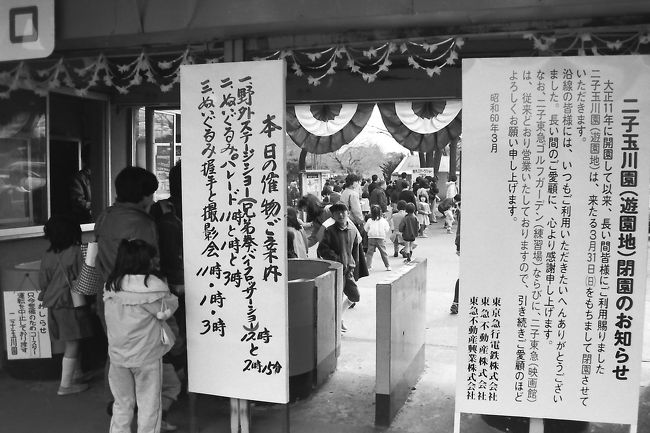 口
二子玉川園(遊園地)閉園のお知らせ
大正11年に開園して以来、長い間皆様にご利用賜りました
二子玉川園(遊園地)は、来たる3月31日(日)をもちまして閉園させて
いただきます。
沿線の皆様には、いつもご利用いただきたいへんありがとうござい
ました。長い間のご愛顧に、心より感謝申し上げます。
なお、二子東急ゴルフガーデン(練習場)ならびに、二子東急(映画館)
は、従来どおり営業いたしておりますので、引き続きご愛顧のほど
よろしくお願い申し上げます。
昭和60年3月
東京急行電鉄株式会社
東急不動産株式会社
東急不動産興業株式会社
本日の催物ご案内
一、野外ステージショー(兄弟拳バイクロッサー)12時と
2時15分
二、ぬいぐるみパレード11時と3時
三、ぬいぐるみ握手と撮影会11時・1時・3時
おしらせ
二子玉川園